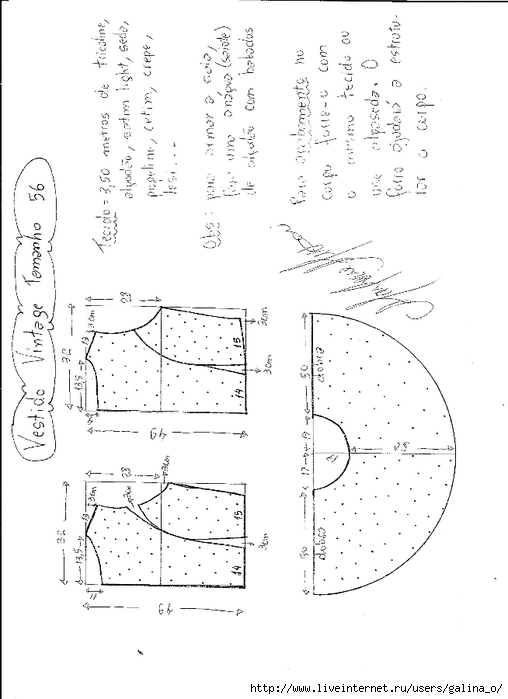 Vestido Vintage Tamanho 56
Tecido = 3,50 metros de tricoline,
algodão, cetim light, seda,
popeline, cetim, crepe,
lesi....
Obs: para armar a saia,
faça uma anágua (saiote)
de algodão com babados
Para acabamento no
corpo forre-o com
o mesmo tecido ou
use
O
forro ajudará a estrutu-
rar o corpo.
32
13,5
13
3cm
11
28
2cm
3cm
49
14
15
3cm
32
13,5
13
3cm
28
49
14
15
2cm
3cm
50
17
17
50
dobra
dobra
17
http://www.liveinternet.ru/users/galina_o/